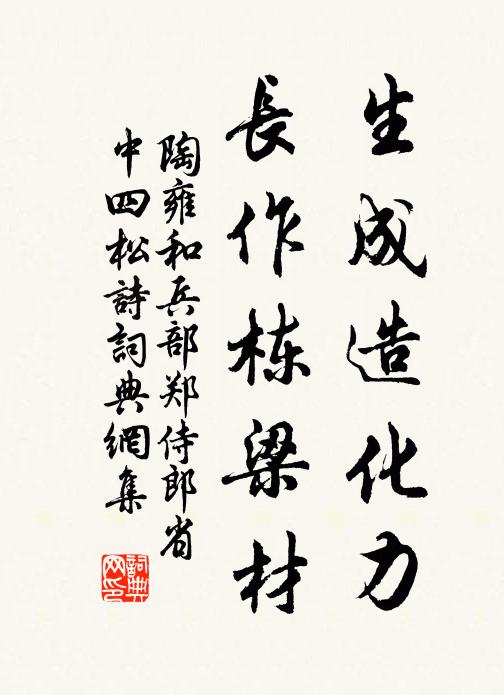 生成造化力
長作栋梁材
陶雍和兵部郑侍郎省
中四松詩詞典網集
詞典
网印